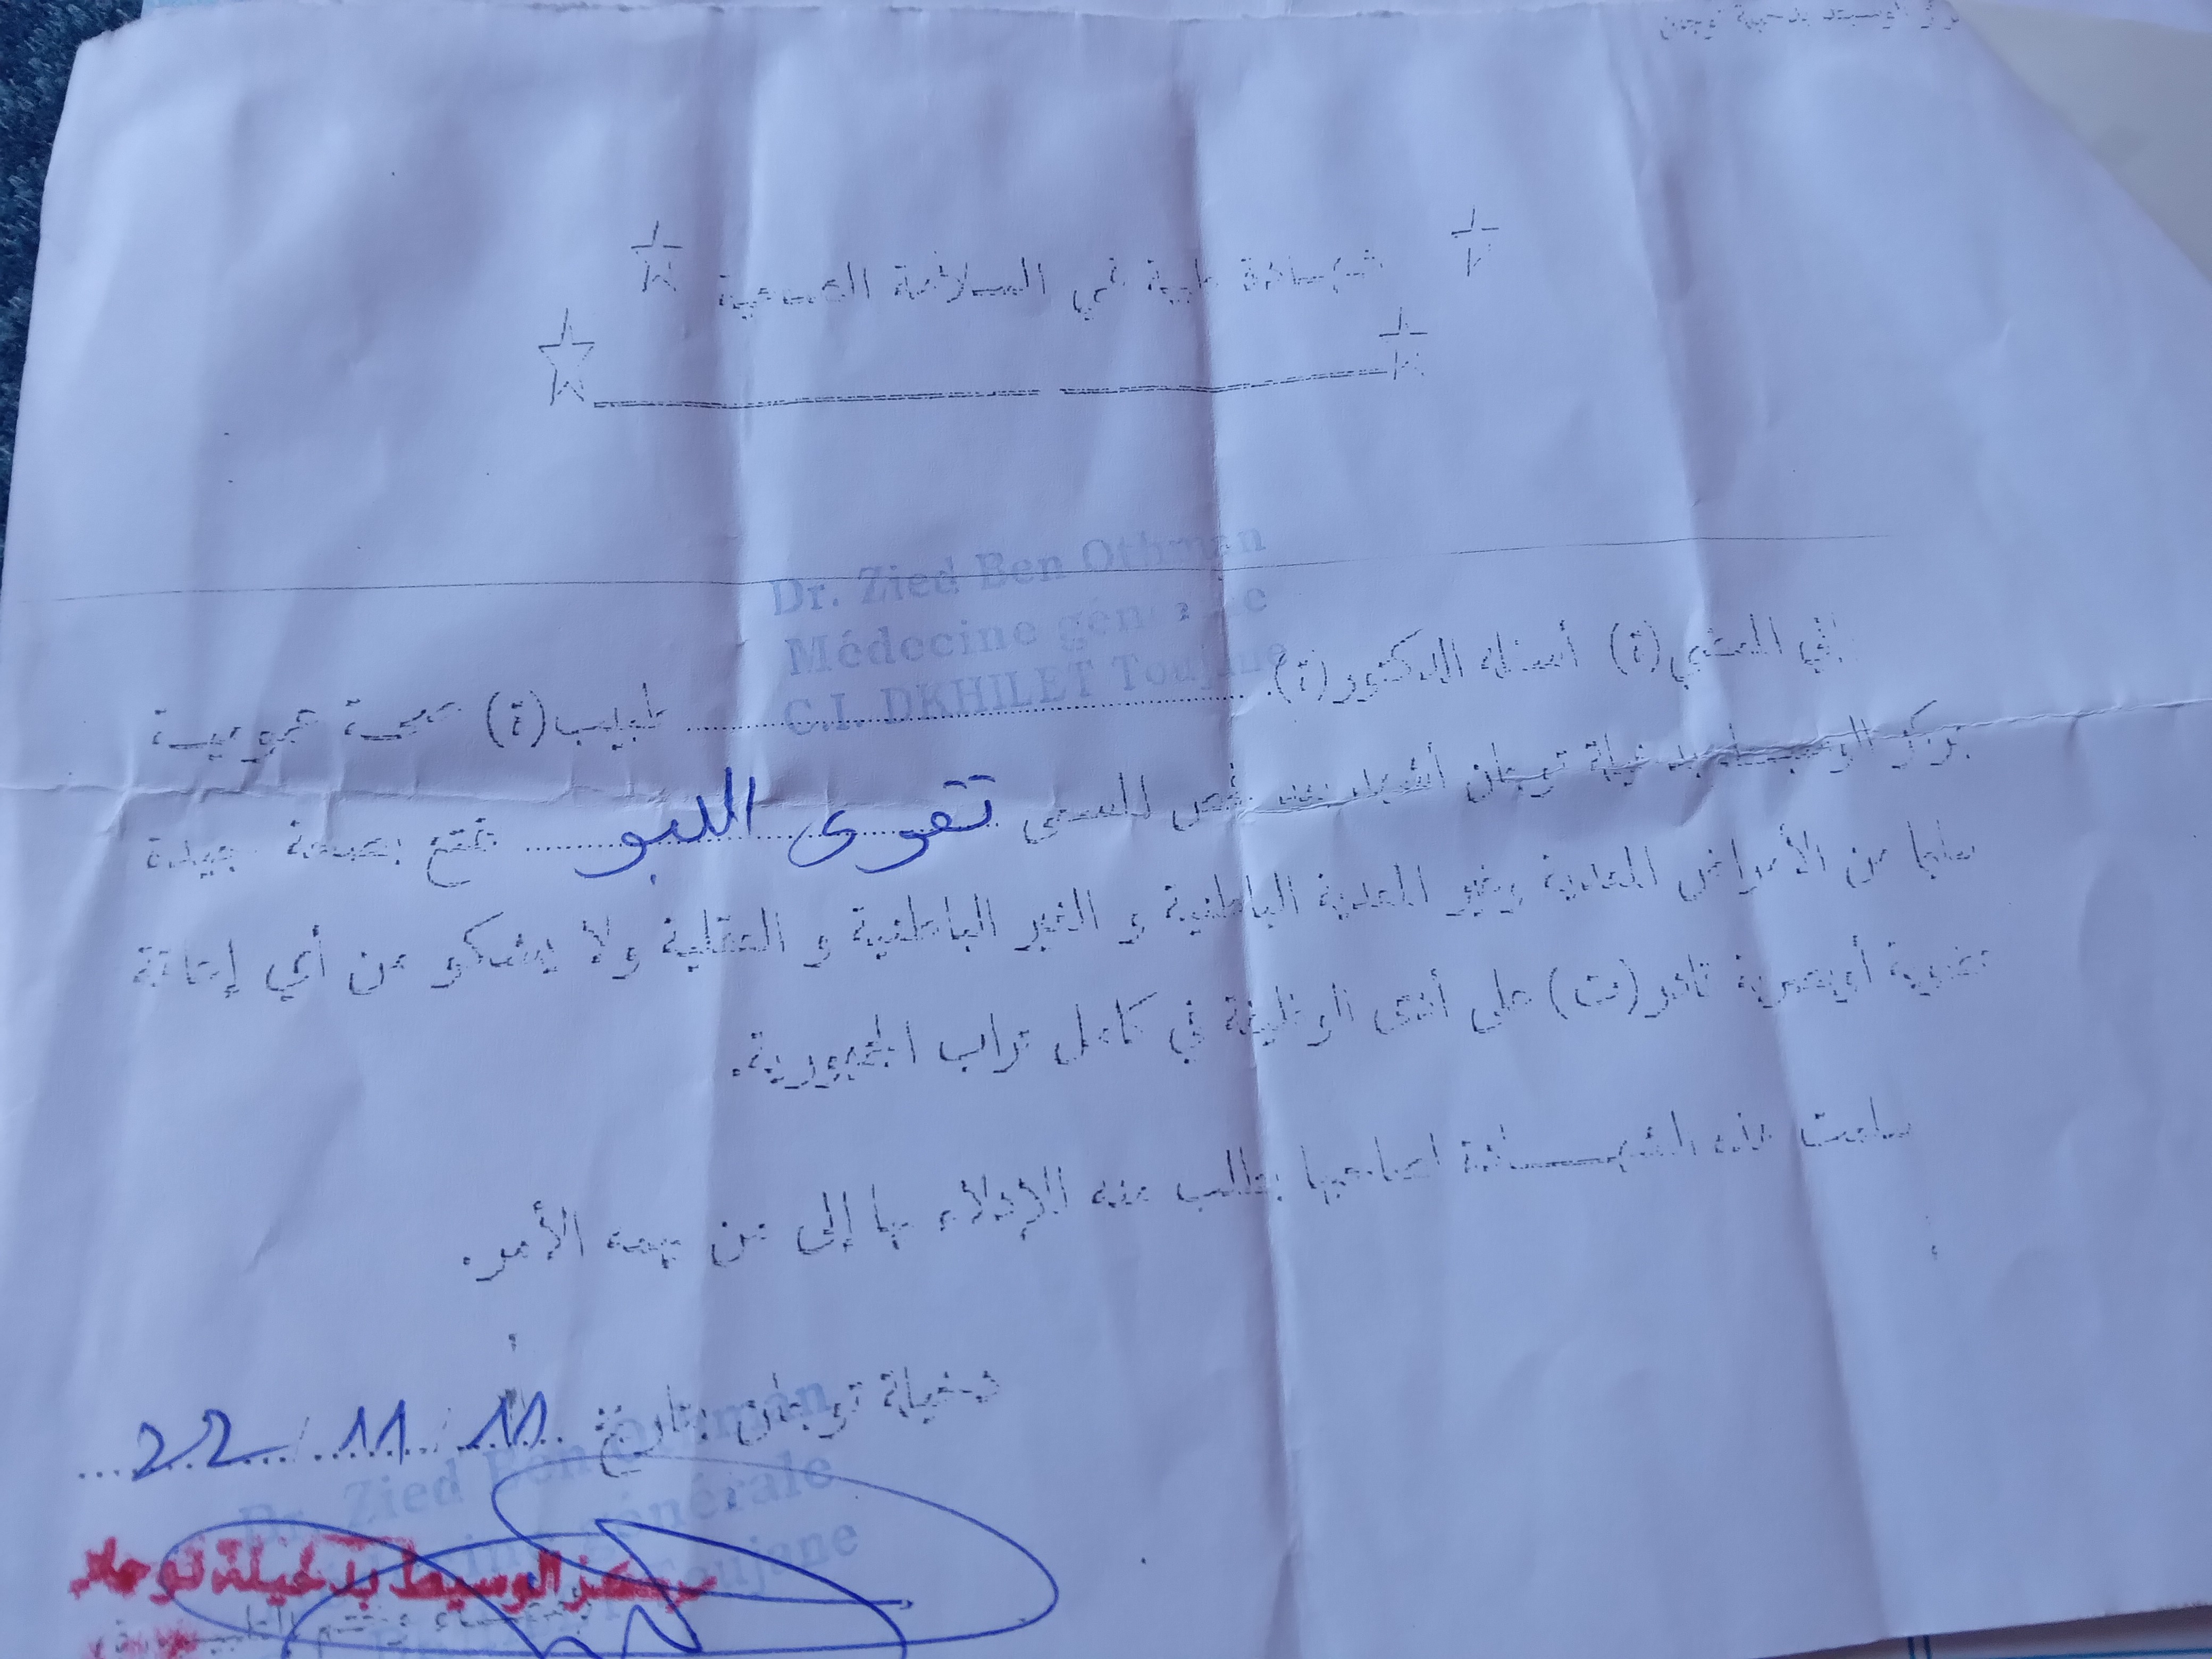 شهادة طبية في السلامة الصحية
Dr. Zied Ben Othman
Médecine générale
C.I. DKHILET Toujane
إني الممضي(ة) أسفله الدكتور(ة)........ طبيب(ة) صحة عمومية
بمركز الوسيط بدخيلة توجان أشهد بعد فحص المسمى تقوى اللبو يتمتع بصحة جيدة
سالما من الأمراض المعدية وغير المعدية الباطنية و الغير الباطنية و العقلية ولا يشكو من أي إعاقة
عضوية أوبصرية قادر(ت) على أدى الوظيفة في كامل تراب الجمهورية.
سلمت هذه الشهـــــادة لصاحبها بطلب منه للإدلاء بها إلى من يهمه الأمر.
دخيلة توجان بتاريخ 11/11/22
Dr. Zied Ben Othman
Médecine générale
Toujane
مركز الوسيط بدخيلة توجان